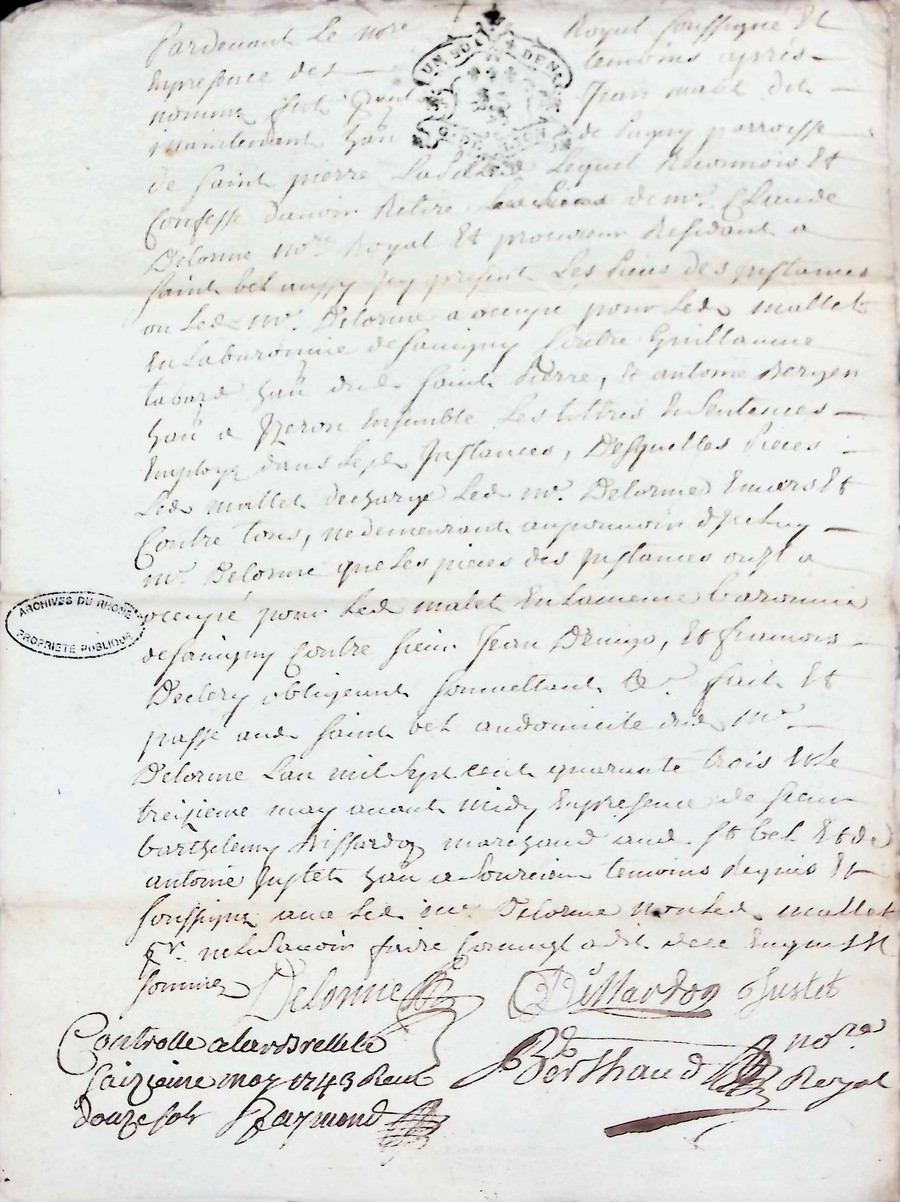 Pardevant Le nore Royal soussigné Et
En presence des temoins apres
nommé fut Jean malet dit
maintenant hân de parroisse
de saint pierre Lequel Reconnois Et
Confesse davoir Retiré de mr. Claude
Delorme nore. Royal Et procureur Residant a
saint bel aussy Icy present Les pieces des Instances
ou Led. mr. Delorme a occupé pour Led. mallet
En La baronnie de savigny Contre Guillaume
hân dud. saint Pierre, Et antoine
hân a Izeron Ensemble Les tiltres En sentences
Employe dans Lesd. Instances, Desquelles pieces
Led. mallet decharge Led. mr. Delorme Envers Et
Contre tous, ne demeurant au pouvoir dud.
mr. Delorme que Les pieces des Instances ou Il a
occupé pour Led. malet En La meme baronnie
de savigny Contre sieur Jean Et francois
Declery obligeant soumettant &c. fait Et
passé aud. saint bel au domicile dud. mr.
Delorme Lan mil sept cent quarante trois Et Le
treizieme may avant midy En presence de sieur
barthelemy Riffardon marchand aud. st bel Et de
antoine Justet hân a Sourcieu temoins Requis Et
soussignes avec Led. mr. Delorme non Led. mallet
pr. ne Le Savoir faire Comme Il a dit de ce Enquis Et
sommé
Delorme Riffardon Justet
Controlle a Larbrelle Le
saizieme may 1743 Recu
douze sols Raymond
Berthaud nore Royal
ARCHIVES DU RHONE
PROPRIETE PUBLIQUE